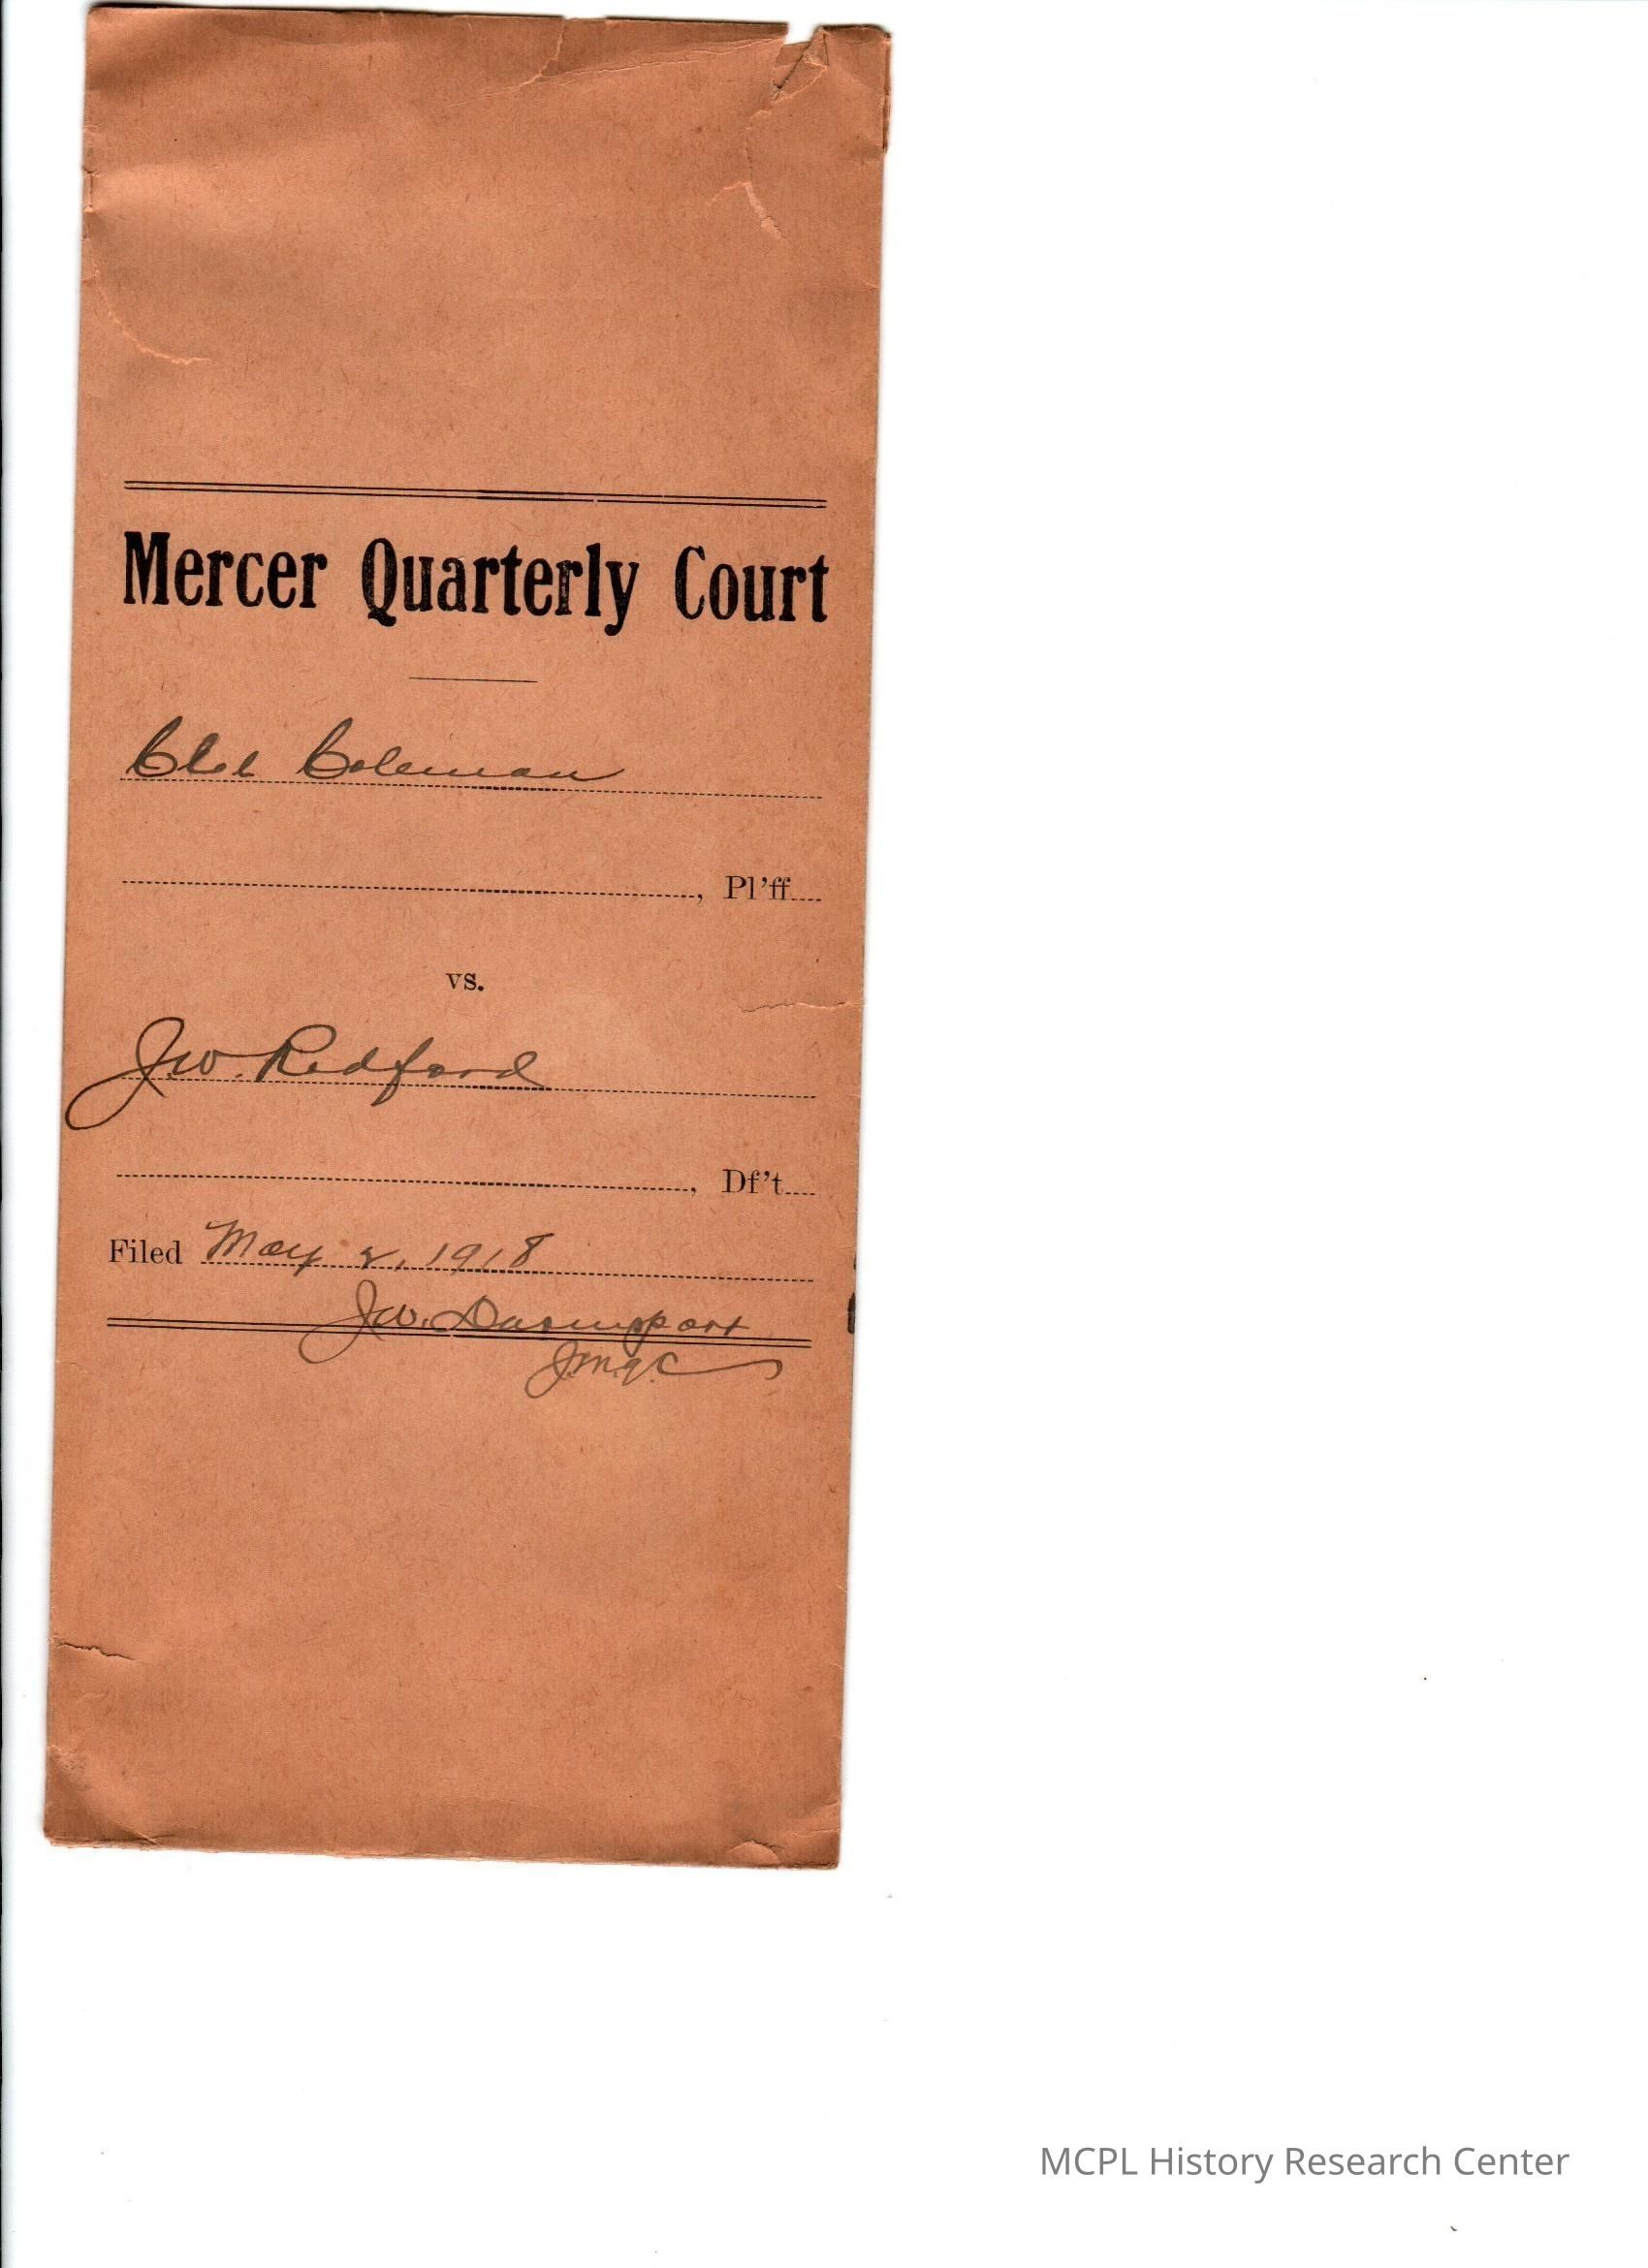 Mercer Quarterly Court
Coleman
, Pl'ff
vs.
J.W. Redford
, Df't
Filed May 2, 1918
J.W. Davenport
J.M.Q.C
MCPL History Research Center